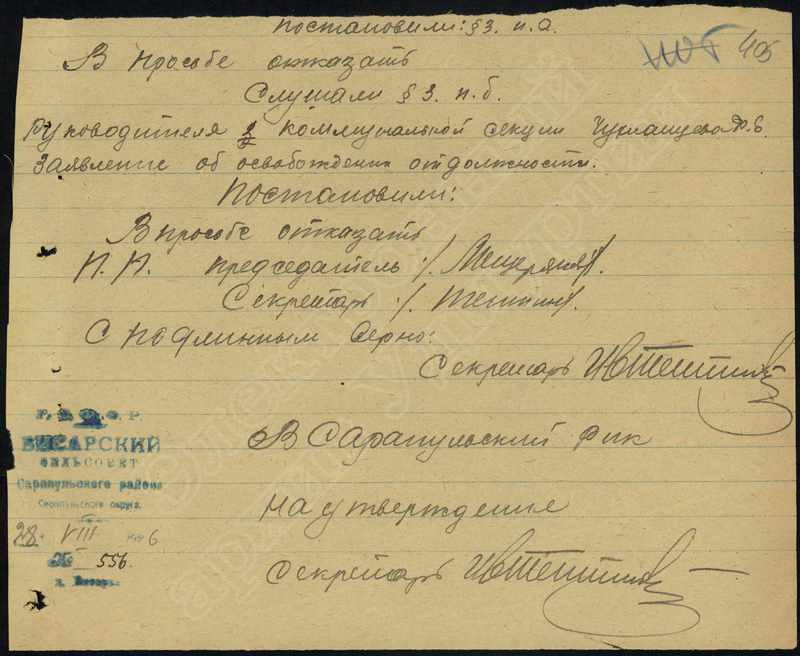 Постановили: § 3. п. а.
405
В просьбе отказать
Слушали § 3. п. б.
Руководителя коммунальной секции
Заявление об освобождении от должности.
Постановили:
В просьбе отказать
П. П. Председатель ·/. Мещеряков/.
Секретарь ·/.
С подлинным верно:
Секретарь
Р. С. Ф. С. Р.
сельсовет
Сарапульского района
Сарапульского округа.
28 VIII 6
№ 556.
В Сарапульский Рик
на утверждение
Секретарь